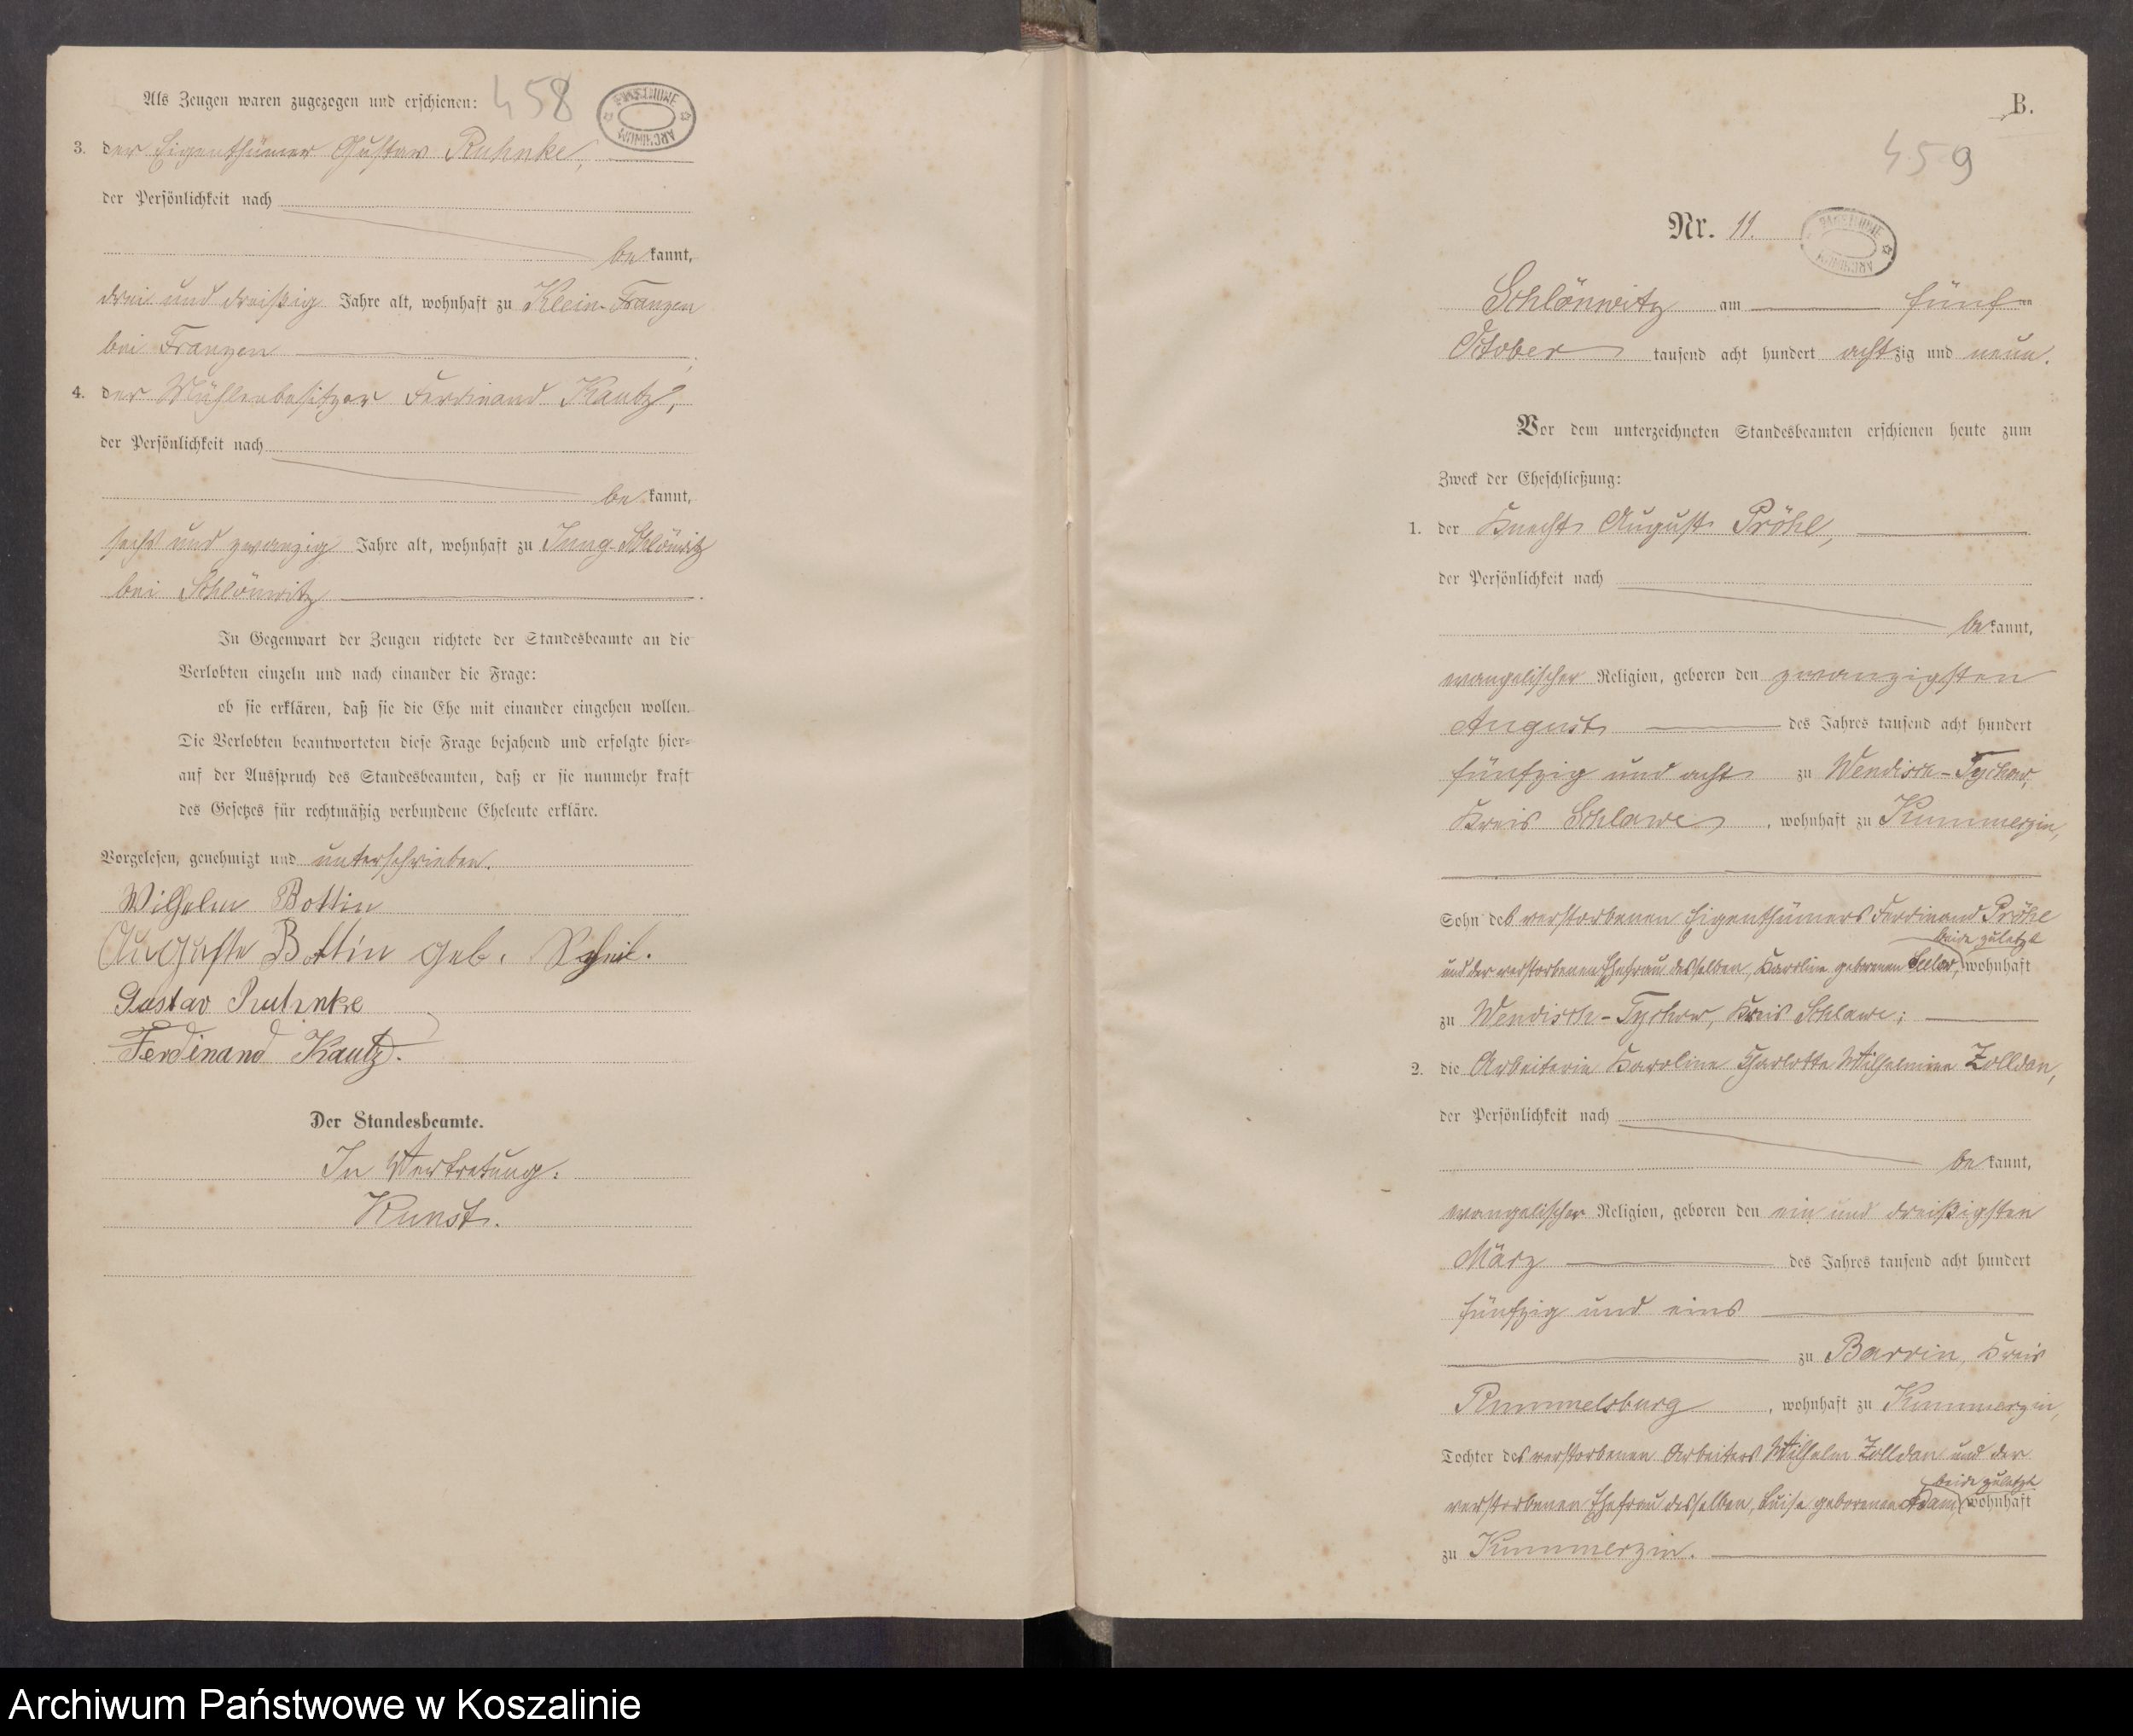 Als Zeugen waren zugezogen und erschienen:
458
3. der Eigenthümer Gustav Ruhnke,
der Persönlichkeit nach
bekannt,
drei und dreißig Jahre alt, wohnhaft zu Klein-Franzen
bei Franzen
4. der Mühlenbesitzer Ferdinand Kautz,
der Persönlichkeit nach
bekannt,
sechs und zwanzig Jahre alt, wohnhaft zu Jung-Schlönwitz
bei Schlönwitz
In Gegenwart der Zeugen richtete der Standesbeamte an die
Verlobten einzeln und nach einander die Frage:
ob sie erklären, daß sie die Ehe mit einander eingehen wollen.
Die Verlobten beantworteten diese Frage bejahend und erfolgte hier-
auf der Ausspruch des Standesbeamten, daß er sie nunmehr kraft
des Gesetzes für rechtmäßig verbundene Eheleute erkläre.
Vorgelesen, genehmigt und unterschrieben.
Wilhelm Bottin
Auguste Bottin geb.
Gustav Ruhnke
Ferdinand Kautz.
Der Standesbeamte.
In Vertretung:
Kunst.
B.
459
Nr. 11.
Schlönwitz am fünften
October tausend acht hundert achtzig und neun.
Vor dem unterzeichneten Standesbeamten erschienen heute zum
Zweck der Eheschließung:
1. der Knecht August Pröhl,
der Persönlichkeit nach
bekannt,
evangelischer Religion, geboren den zwanzigsten
August des Jahres tausend acht hundert
fünfzig und acht zu Wendisch-Tychow,
Kreis Schlawe, wohnhaft zu Kummerzin,
Sohn des verstorbenen Eigenthümers Ferdinand Pröhl
beide zuletzt
und der verstorbenen Ehefrau desselben, Karoline geborenen wohnhaft
zu Wendisch-Tychow, Kreis Schlawe;
2. die Arbeiterin Karoline Charlotte Wilhelmine Zolldan,
der Persönlichkeit nach
bekannt,
evangelischer Religion, geboren den ein und dreißigsten
März des Jahres tausend acht hundert
fünfzig und eins
zu Barvin, Kreis
Rummelsburg, wohnhaft zu Kummerzin,
Tochter des verstorbenen Arbeiters Wilhelm Zolldan und der
beide zuletzt
verstorbenen Ehefrau desselben, Luise geborenen Adam, wohnhaft
zu Kummerzin.
Archiwum Państwowe w Koszalinie